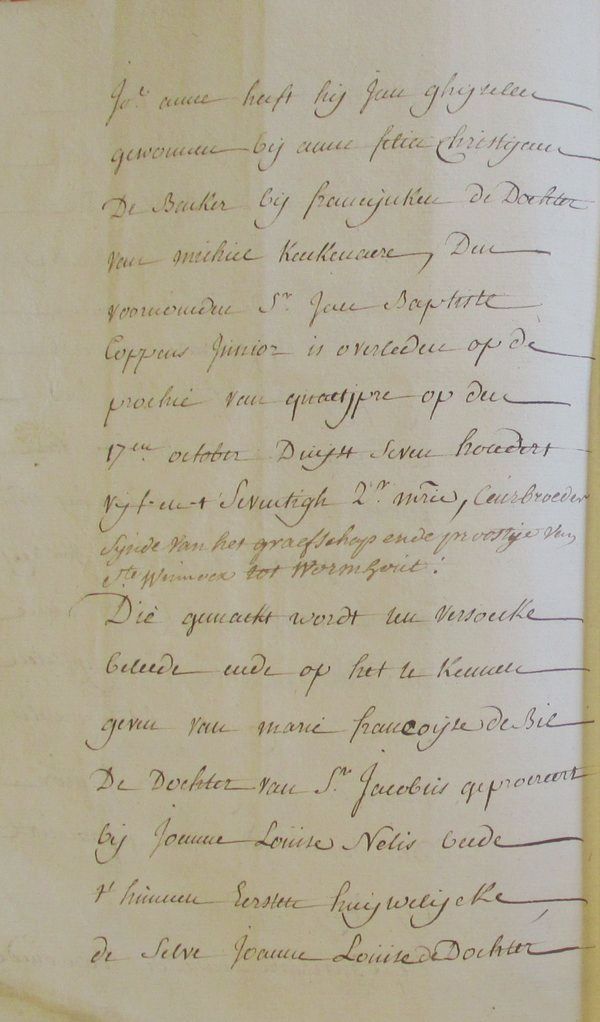 Jo.e anne heeft hij Jan ghyselen
gewonnen bij anne felia Christijaen
De Backer bij francijnken de Dochter
van michiel Keukenaere, Den
voornomden Sr. Jan Baptiste
Coppens Junior is overleden op de
prochie van quaetijpre op den
17en october Duijst seven hondert
vijf en t seventigh 2.r mrie, Ceurbroeder
sijnde van het graefschap ende proostije van
Ste Winnock tot Wormhout:
Die gemackt wordt ten versoucke
beleede ende op het te Kennen
geven van marie francoijse de Bil
De Dochter van Sr. Jacobus geprocreert
bij Joanne Louise Nelis beede
t' hunnen Eersten huijwelijcke
de selve Joanne Louise de Dochter